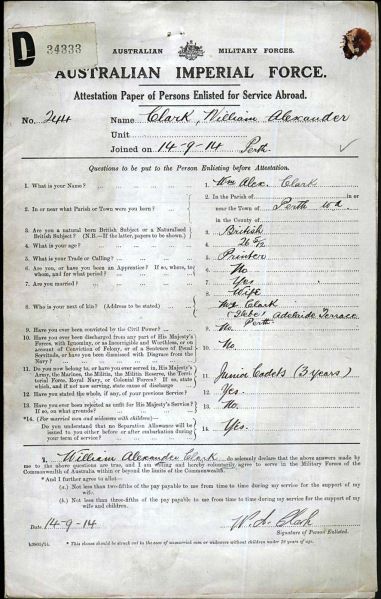 D 34333
AUSTRALIAN MILITARY FORCES.
AUSTRALIAN IMPERIAL FORCE.
Attestation Paper of Persons Enlisted for Service Abroad.
No. 244 Name Clark, William Alexander
Unit
Joined on 14-9-14 Perth
Questions to be put to the Person Enlisting before Attestation.
1. What is your Name? 1. Wm Alex. Clark
2. In or near what Parish or Town were you born? 2. In the Parish of in or
near the Town of Perth W.A.
in the County of
3. Are you a natural born British Subject or a Naturalised
British Subject? (N.B.—If the latter, papers to be shown.) 3. British
4. What is your age? 4. 26
5. What is your Trade or Calling? 5. Printer
6. Are you, or have you been an Apprentice? If so, where, to
whom, and for what period? 6. No
7. Are you married? 7. Yes
8. Who is your next of kin? (Address to be stated) 8. Wife
Clark
Adelaide Terrace
Perth
9. Have you ever been convicted by the Civil Power? 9. No
10. Have you ever been discharged from any part of His Majesty's
Forces, with Ignominy, or as Incorrigible and Worthless, or on
account of Conviction of Felony, or of a Sentence of Penal
Servitude, or have you been dismissed with Disgrace from the
Navy? 10. No.
11. Do you now belong to, or have you ever served in, His Majesty's
Army, the Marines, the Militia, the Militia Reserve, the Terri-
torial Force, Royal Navy, or Colonial Forces? If so, state
which, and if not now serving, state cause of discharge 11. Junior Cadets (3 years)
12. Have you stated the whole, if any, of your previous Service? 12. Yes.
13. Have you ever been rejected as unfit for His Majesty's Service?
If so, on what grounds? 13. No.
*14. (For married men and widowers with children)
Do you understand that no Separation Allowance will be
issued to you either before or after embarkation during
your term of service? 14. Yes.
I, William Alexander Clark do solemnly declare that the above answers made by
me to the above questions are true, and I am willing and hereby voluntarily agree to serve in the Military Forces of the
Commonwealth of Australia within or beyond the limits of the Commonwealth.
* And I further agree to allot—
(a.) Not less than two-fifths of the pay payable to me from time to time during my service for the support of my
wife.
(b.) Not less than three-fifths of the pay payable to me from time to time during my service for the support of my
wife and children.
Date 14-9-14 W. A. Clark
Signature of Person Enlisted.
* This clause should be struck out in the case of unmarried men or widowers without children under 18 years of age.